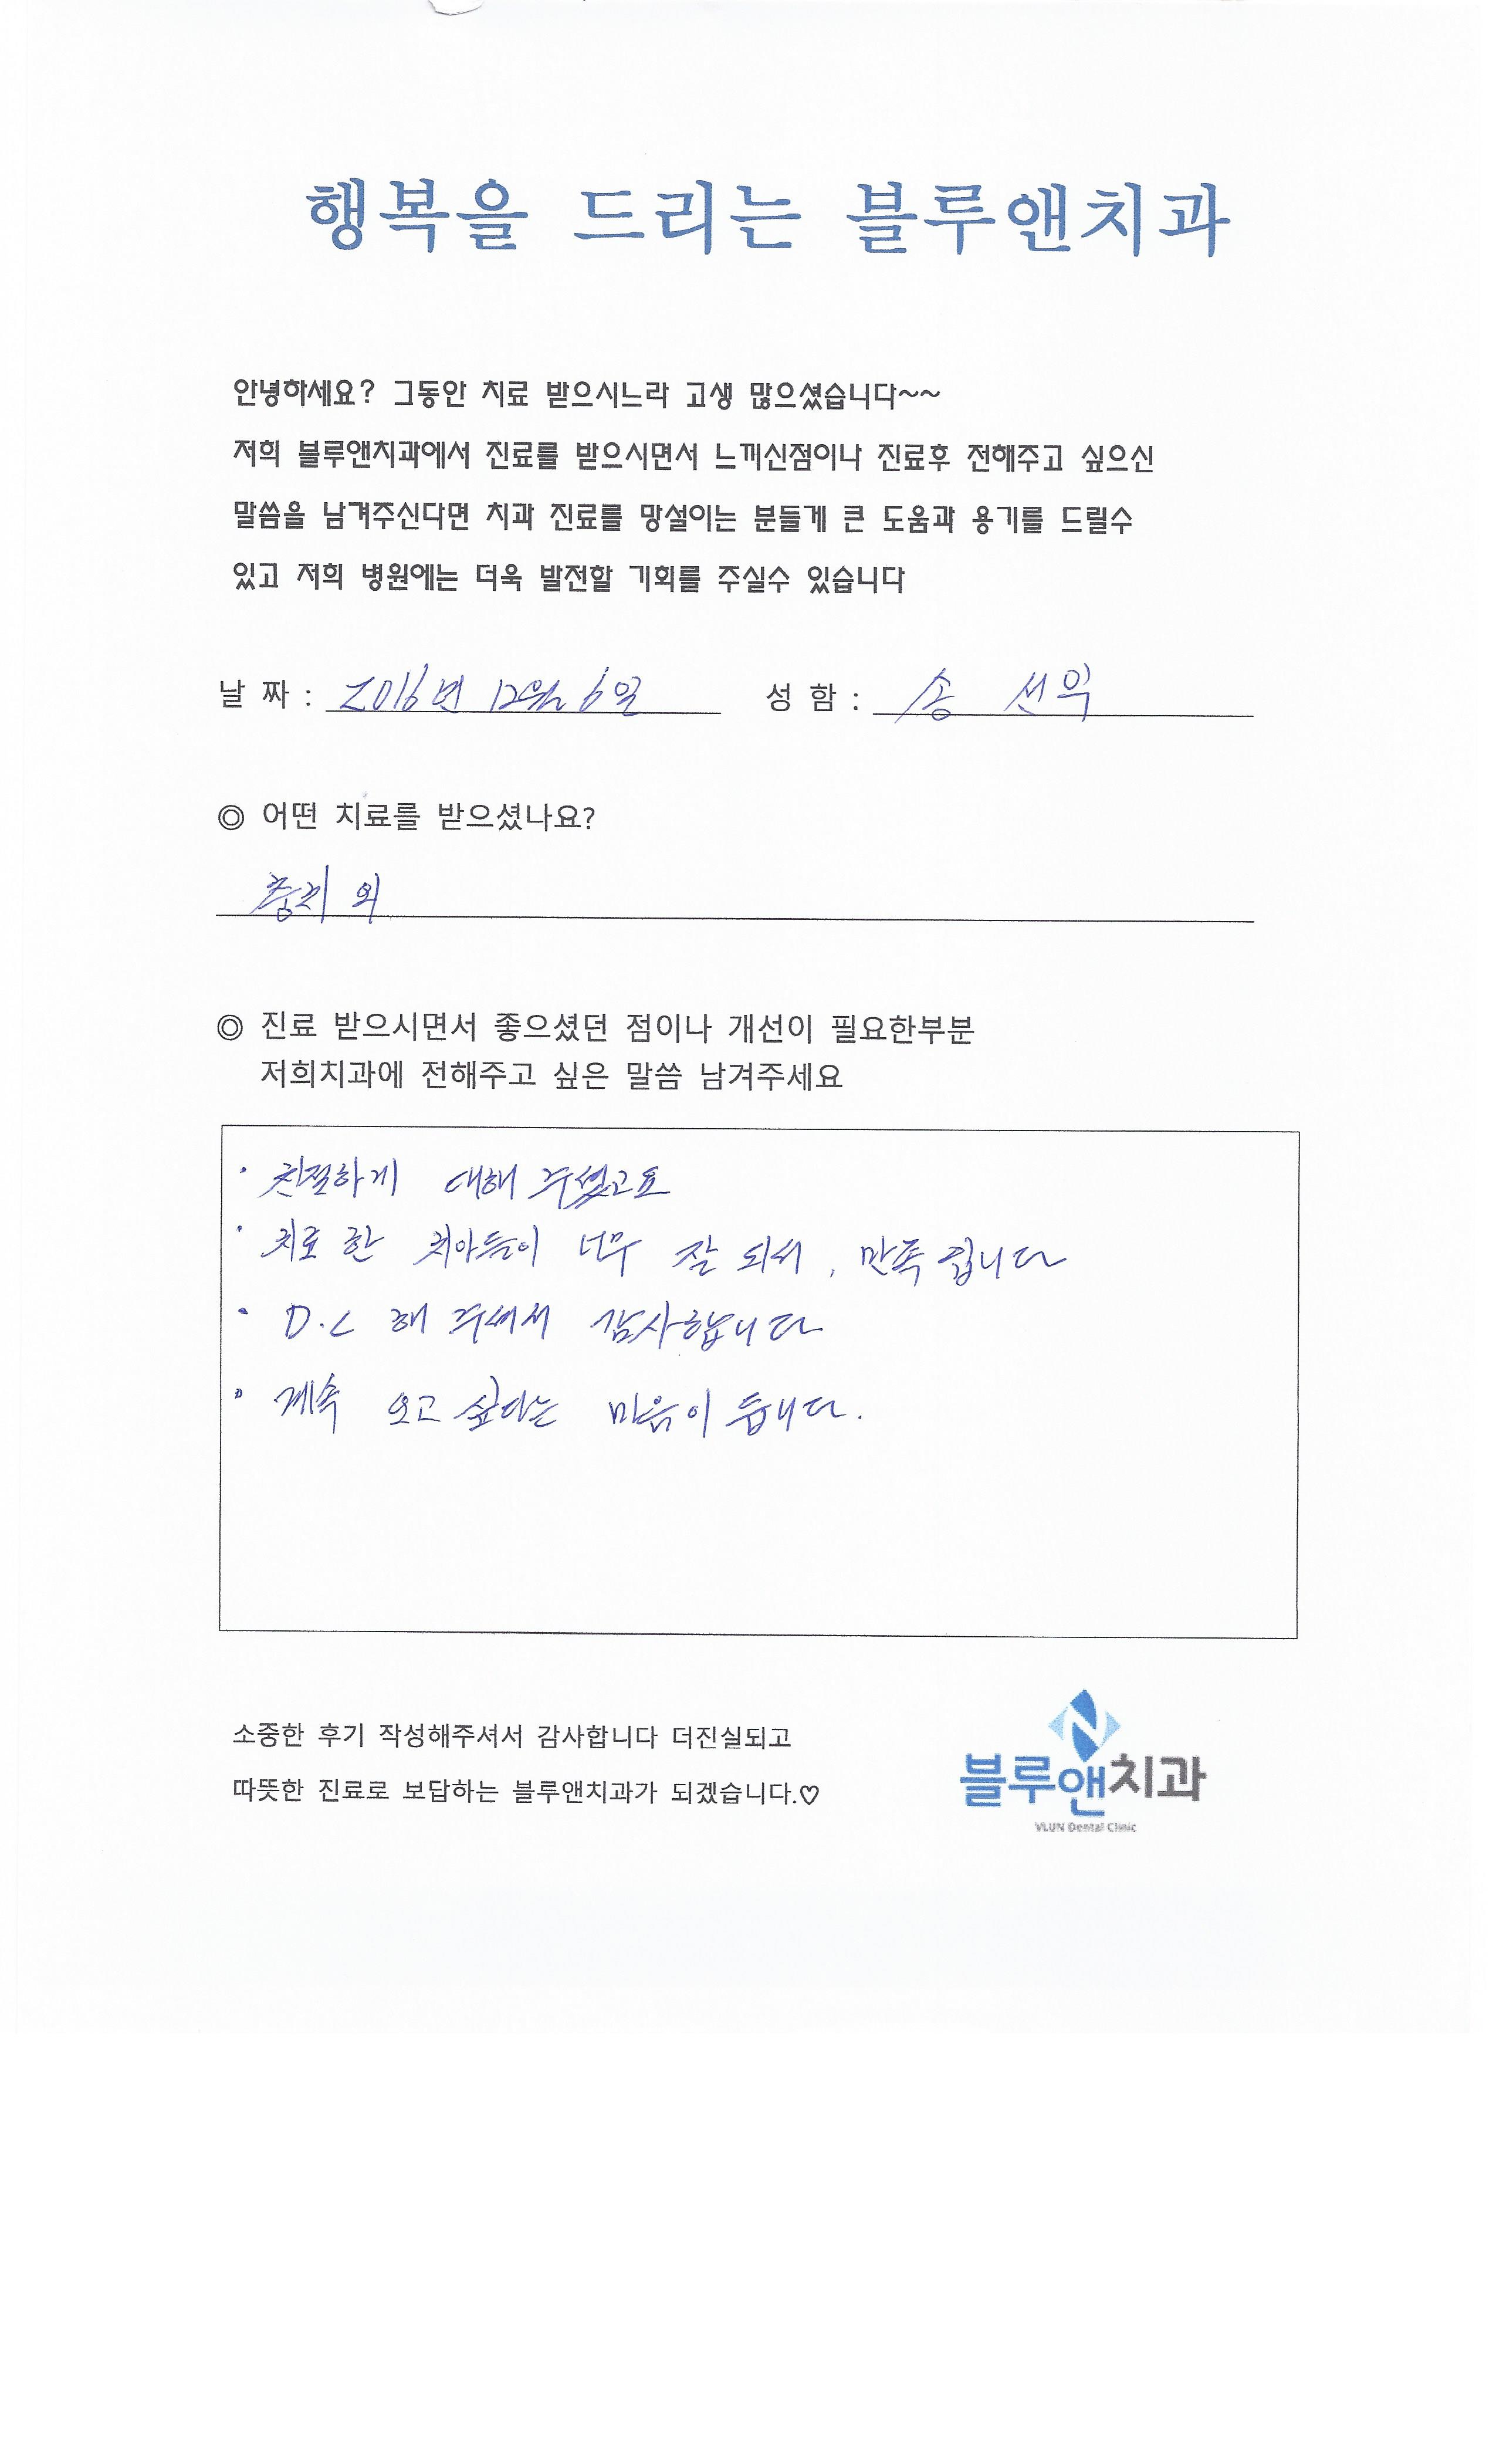 행복을 드리는 블루앤치과
안녕하세요? 그동안 치료 받으시느라 고생 많으셨습니다~~
저희 블루앤치과에서 진료를 받으시면서 느끼신점이나 진료후 전해주고 싶으신
말씀을 남겨주신다면 치과 진료를 망설이는 분들게 큰 도움과 용기를 드릴수
있고 저희 병원에는 더욱 발전할 기회를 주실수 있습니다
날 짜 : 2016년 12월 6일 성 함 : 송 선익
◎ 어떤 치료를 받으셨나요?
충치 외
◎ 진료 받으시면서 좋으셨던 점이나 개선이 필요한부분
저희치과에 전해주고 싶은 말씀 남겨주세요
· 친절하게 대해 주셨고요
· 치료 한 치아들이 너무 잘 되서, 만족 입니다
· D.C 해 주셔서 감사합니다
· 계속 오고 싶다는 마음이 듭니다.
소중한 후기 작성해주셔서 감사합니다 더진실되고
따뜻한 진료로 보답하는 블루앤치과가 되겠습니다.♡
블루앤치과
VLUN Dental Clinic